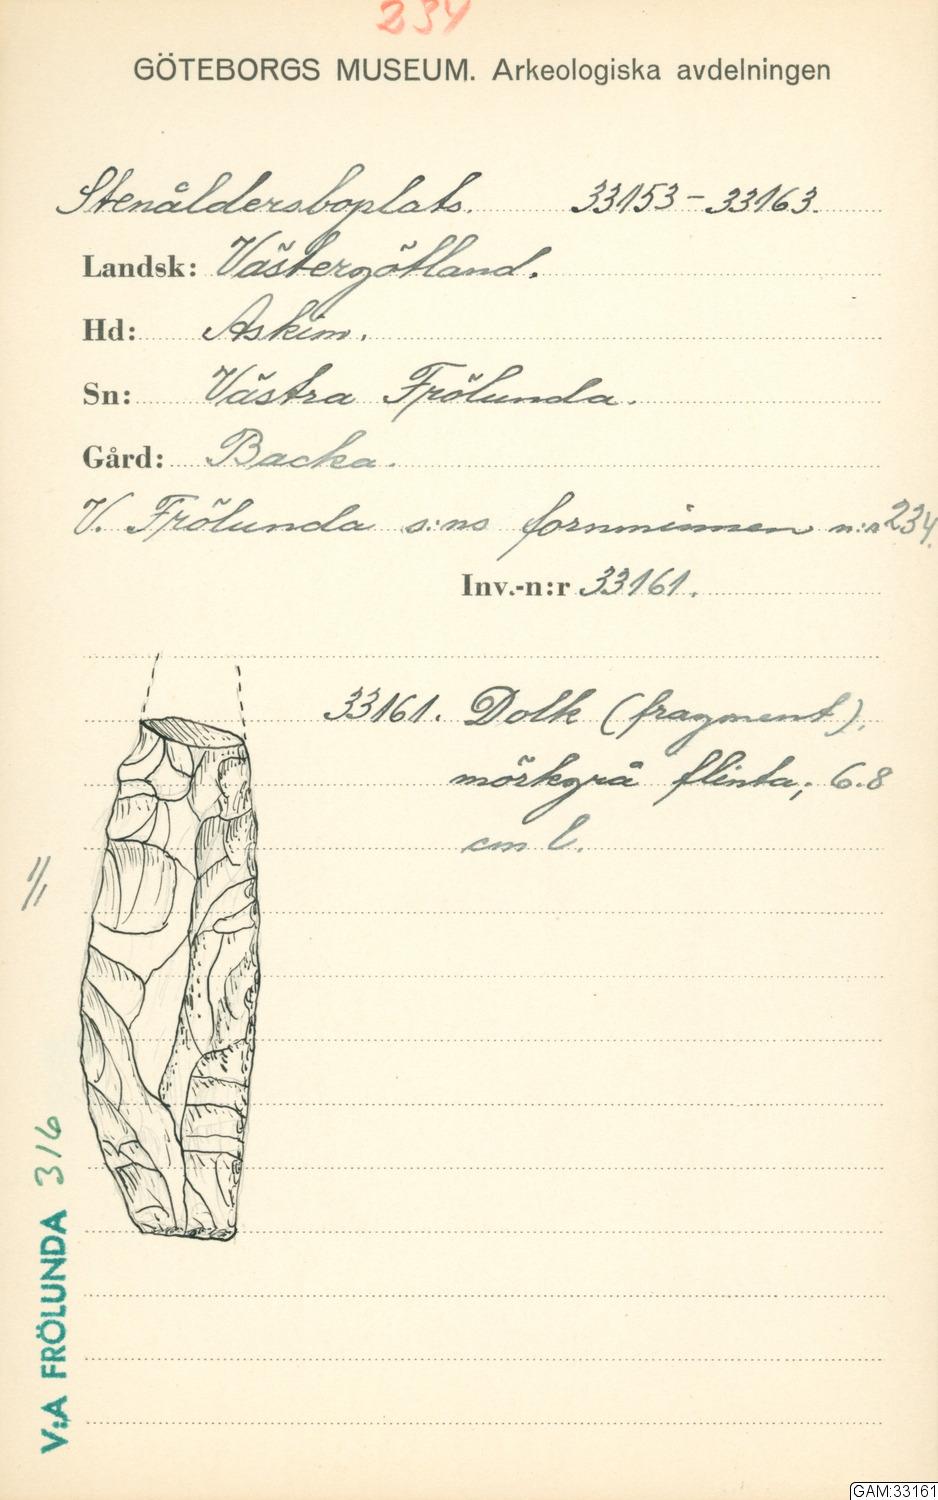 234
GÖTEBORGS MUSEUM. Arkeologiska avdelningen
Stenåldersboplats. 33153-33163.
Landsk: Västergötland.
Hd: Askim.
Sn: Västra Frölunda.
Gård: Backa.
V. Frölunda s:ns fornminnen n:r 234.
Inv.-n:r 33161.
33161. Dolk (fragment),
mörkgrå flinta; 6.8
cm l.
1/1
V:A FRÖLUNDA 316
GAM:33161